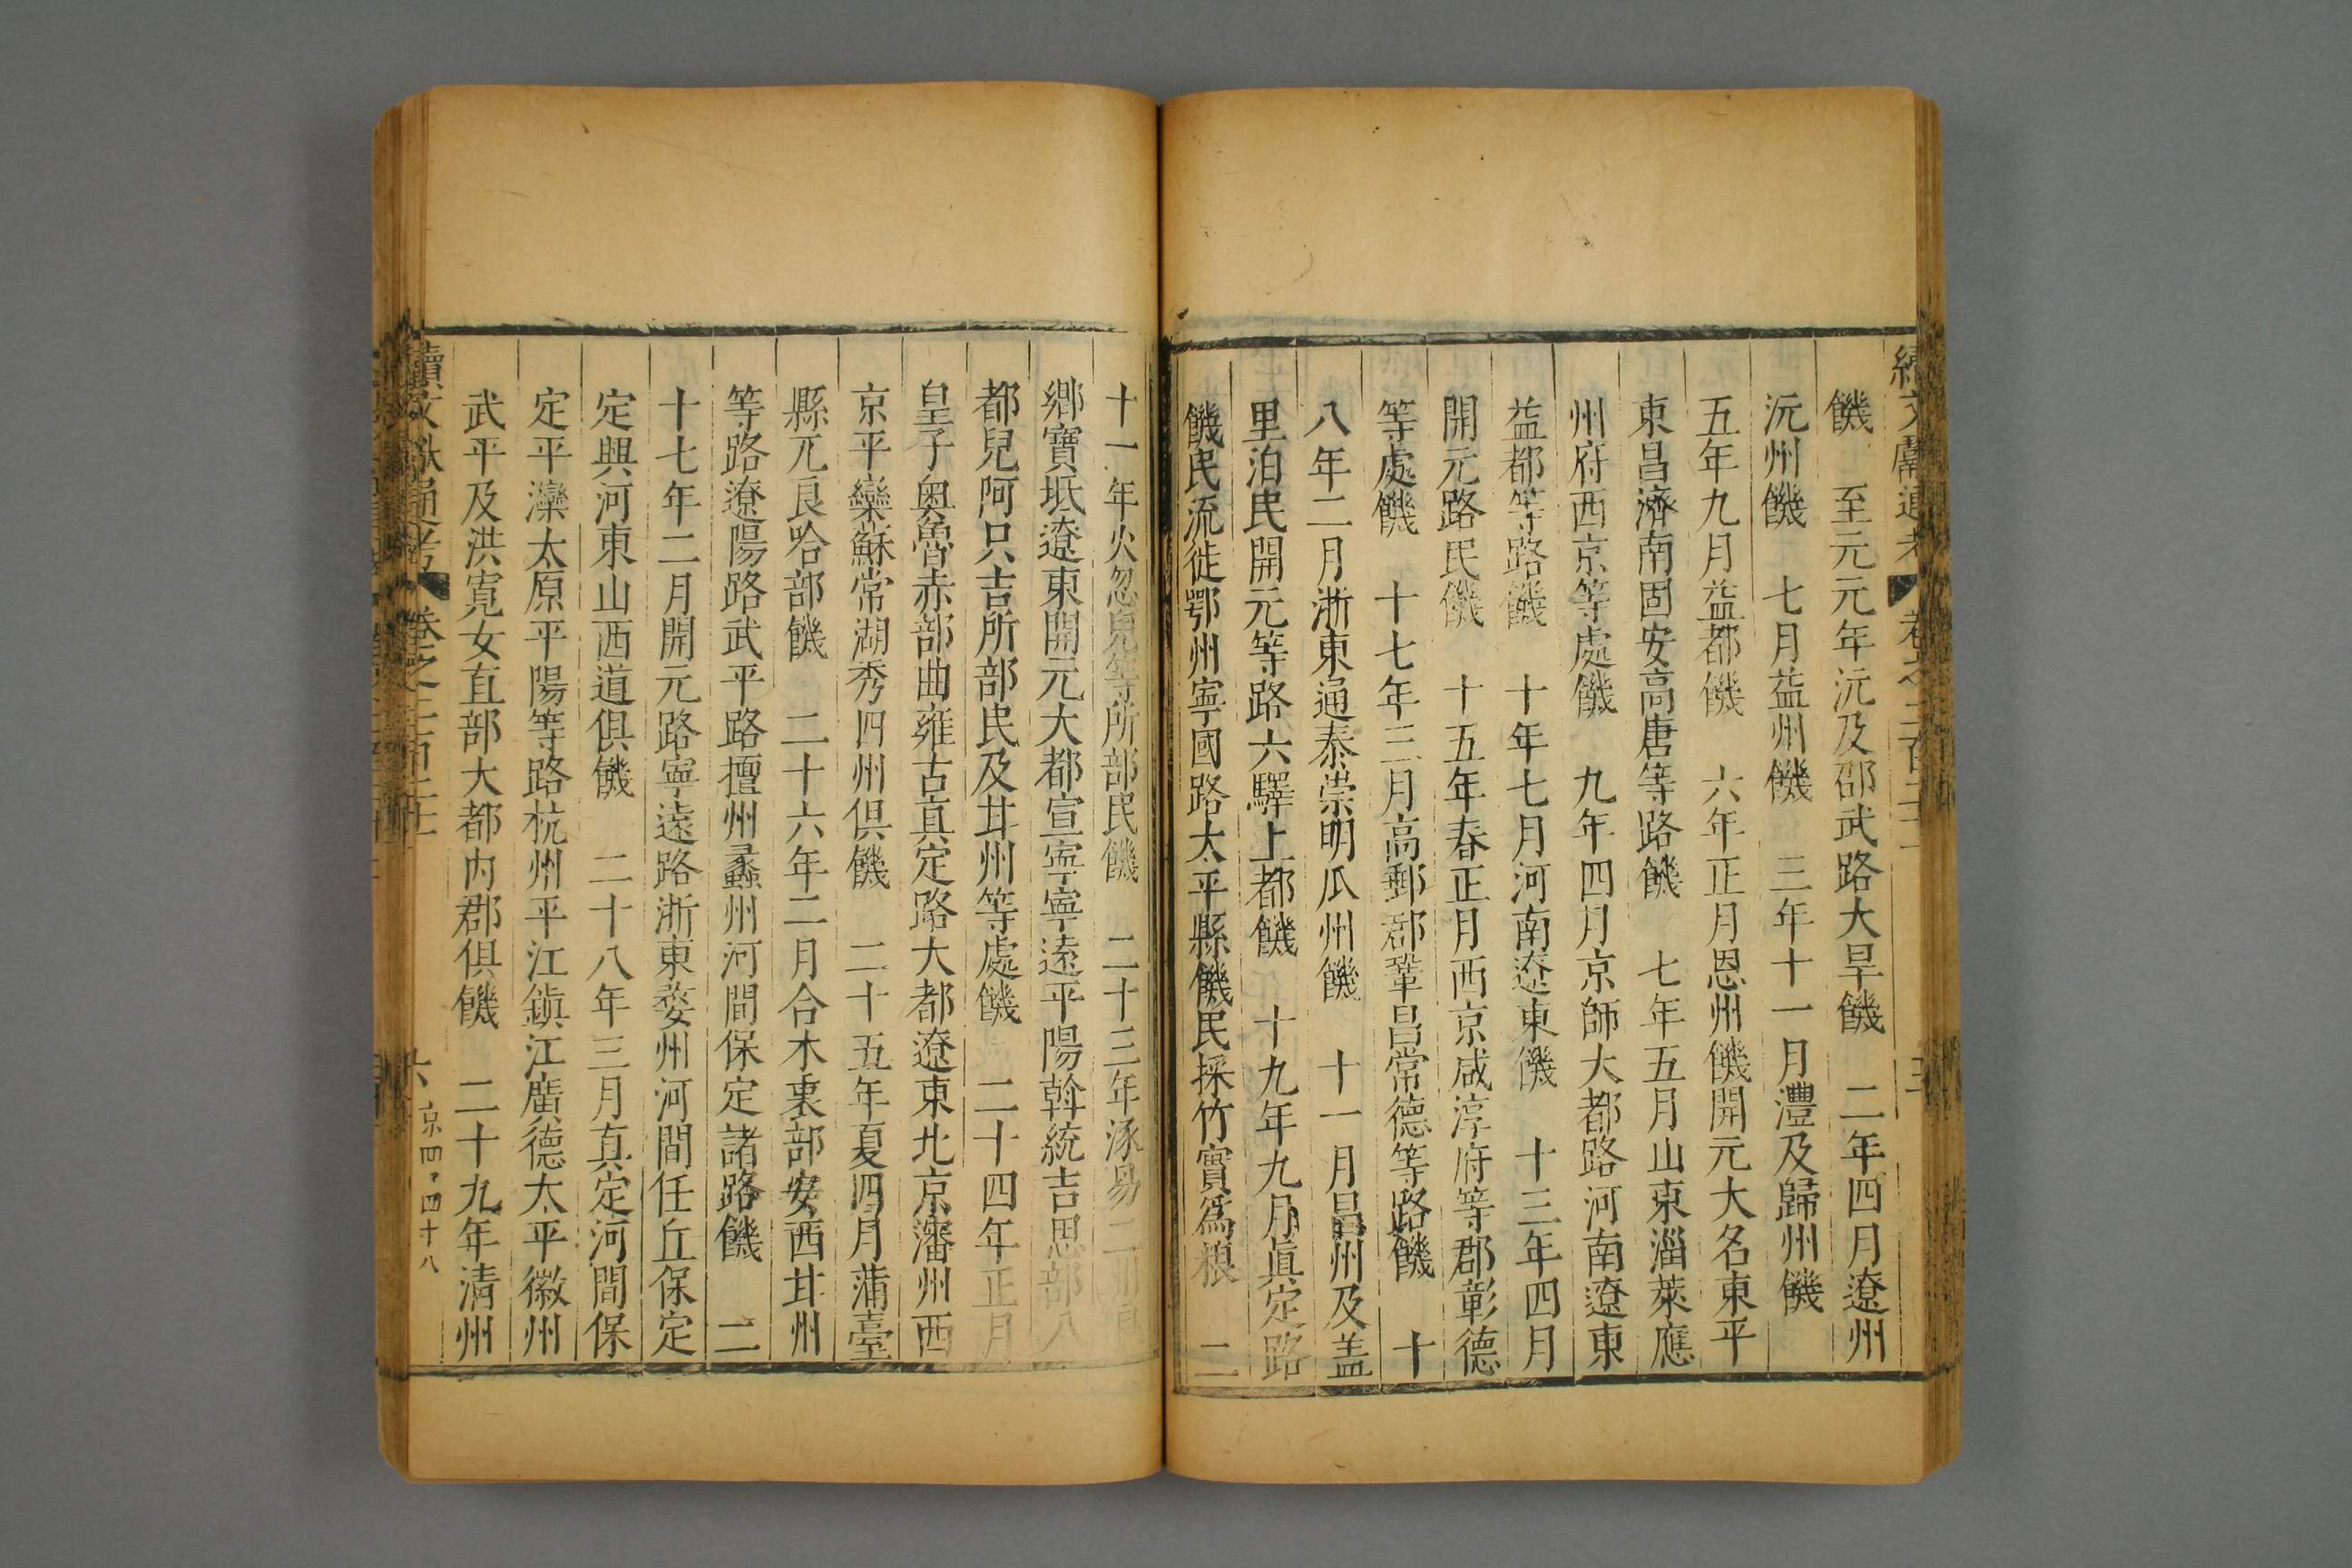 續文獻通考 卷之二百二十
饑 至元元年沅及邵武路大旱饑 二年四月遼州
沅州饑 七月益州饑 三年十一月灃及歸州饑
五年九月益都饑 六年正月恩州饑開元大名東平
東昌濟南固安高唐等路饑 七年五月山東淄萊應
州府西京等處饑 九年四月京師大都路河南遼東
益都等路饑 十年七月河南遼東饑 十三年四月
開元路民饑 十五年春正月西京咸淳府等郡彰德
等處饑 十七年三月高郵郡鞏昌常德等路饑 十
八年二月浙東通泰崇明瓜州饑 十一月昌州及盖
里泊民開元等路六驛上都饑 十九年九月真定路
饑民流徙鄂州寧國路太平縣饑民採竹實爲粮 二
十一年火忽兒等所部民饑 二十三年涿易二州
鄉寶坻遼東開元大都宣寧寧遠平陽斡統吉思部八
都兒阿只吉所部民及甘州等處饑 二十四年正月
皇子奥魯赤部曲雍古真定路大都遼東北京瀋州西
京平灤蘇常湖秀四州俱饑 二十五年夏四月蒲臺
縣兀良哈部饑 二十六年二月合木裏部安西甘州
等路遼陽路武平路擅州蠡州河間保定諸路饑 二
十七年二月開元路寧遠路浙東婺州河間任丘保定
定興河東山西道俱饑 二十八年三月真定河間保
定平灤太原平陽等路杭州平江鎮江廣德太平徽州
武平及洪寬女直部大都内郡俱饑 二十九年清州
續文獻通考 卷之二百二十 六 京四四十八